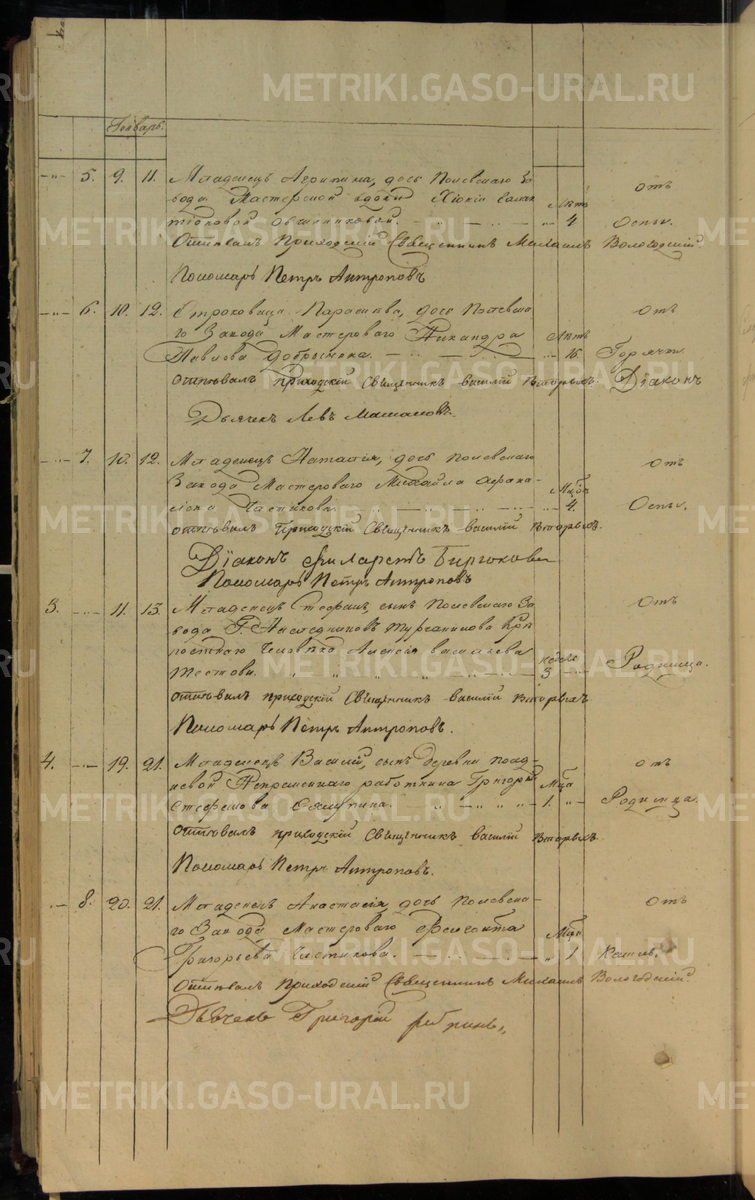 Январь.
5. 9. 11. Младенецъ Агрипина, дочь Полевскаго За
вода Мастерской вдовы Хіоніи
Овчинниковой. Лѣтъ 4 отъ Оспы.
Отпѣвалъ Приходскій Священникъ Михаилъ Вологодскій
Пономарь Петръ Антроповъ
6. 10. 12. Отроковица Парасковья, дочь Полевска
го Завода Мастероваго Никандра
Павлова Добрынина. Лѣтъ отъ Горячк.
отпѣвалъ приходскій Священникъ василій Вторыхъ Діаконъ
Дьячекъ Левъ
7. 10. 12. Младенецъ Наталія, дочь Полевскаго
Завода Мастероваго Михайла Афана
сіева Чистякова. Мцов 4. отъ Оспы.
отпѣвалъ Приходскій Священникъ василій Вторыхъ.
Діаконъ Филаретъ Бирюковъ
Пономарь Петръ Антроповъ
3. 11. 13. Младенецъ Стефанъ, сынъ Полевскаго За
вода Г. Наследниковъ Турчанинова Крѣ
постнаго Человѣка Алексія васильева
Шестова. недели 3 отъ Родимца.
отпѣвалъ приходскій Священникъ василій Вторыхъ
Пономарь Петръ Антроповъ.
4. 19. 21. Младенецъ Василій, сынъ деревни
Непременнаго работника Григорія
Стефанова Мца 1. отъ Родимца.
отпѣвалъ приходскій Священникъ василій Вторыхъ
Пономарь Петръ Антроповъ.
8. 20. 21. Младенецъ Анастасія, дочь Полевска
го Завода Мастероваго
Григорьева Чистякова. Мца 1 отъ Кашля.
Отпѣвалъ Приходскій Священникъ Михаилъ Вологодскій
Дьячекъ Григорій
METRIKI.GASO-URAL.RU